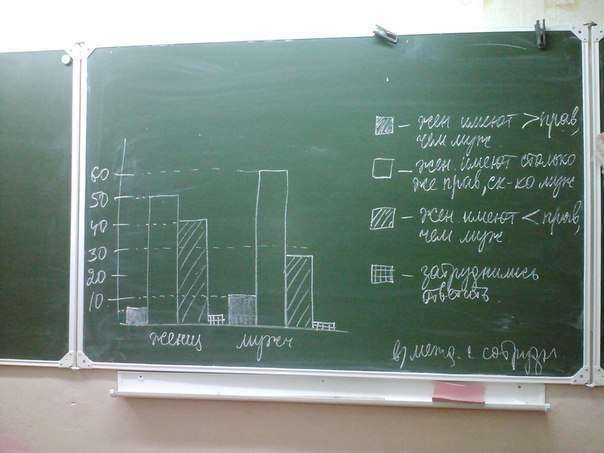 60
50
40
30
20
10
женщ мужч
– жен имеют > прав,
чем муж
– жен. имеют столько
же прав, ск-ко муж
– жен имеют < прав,
чем муж
– затруднились
ответить